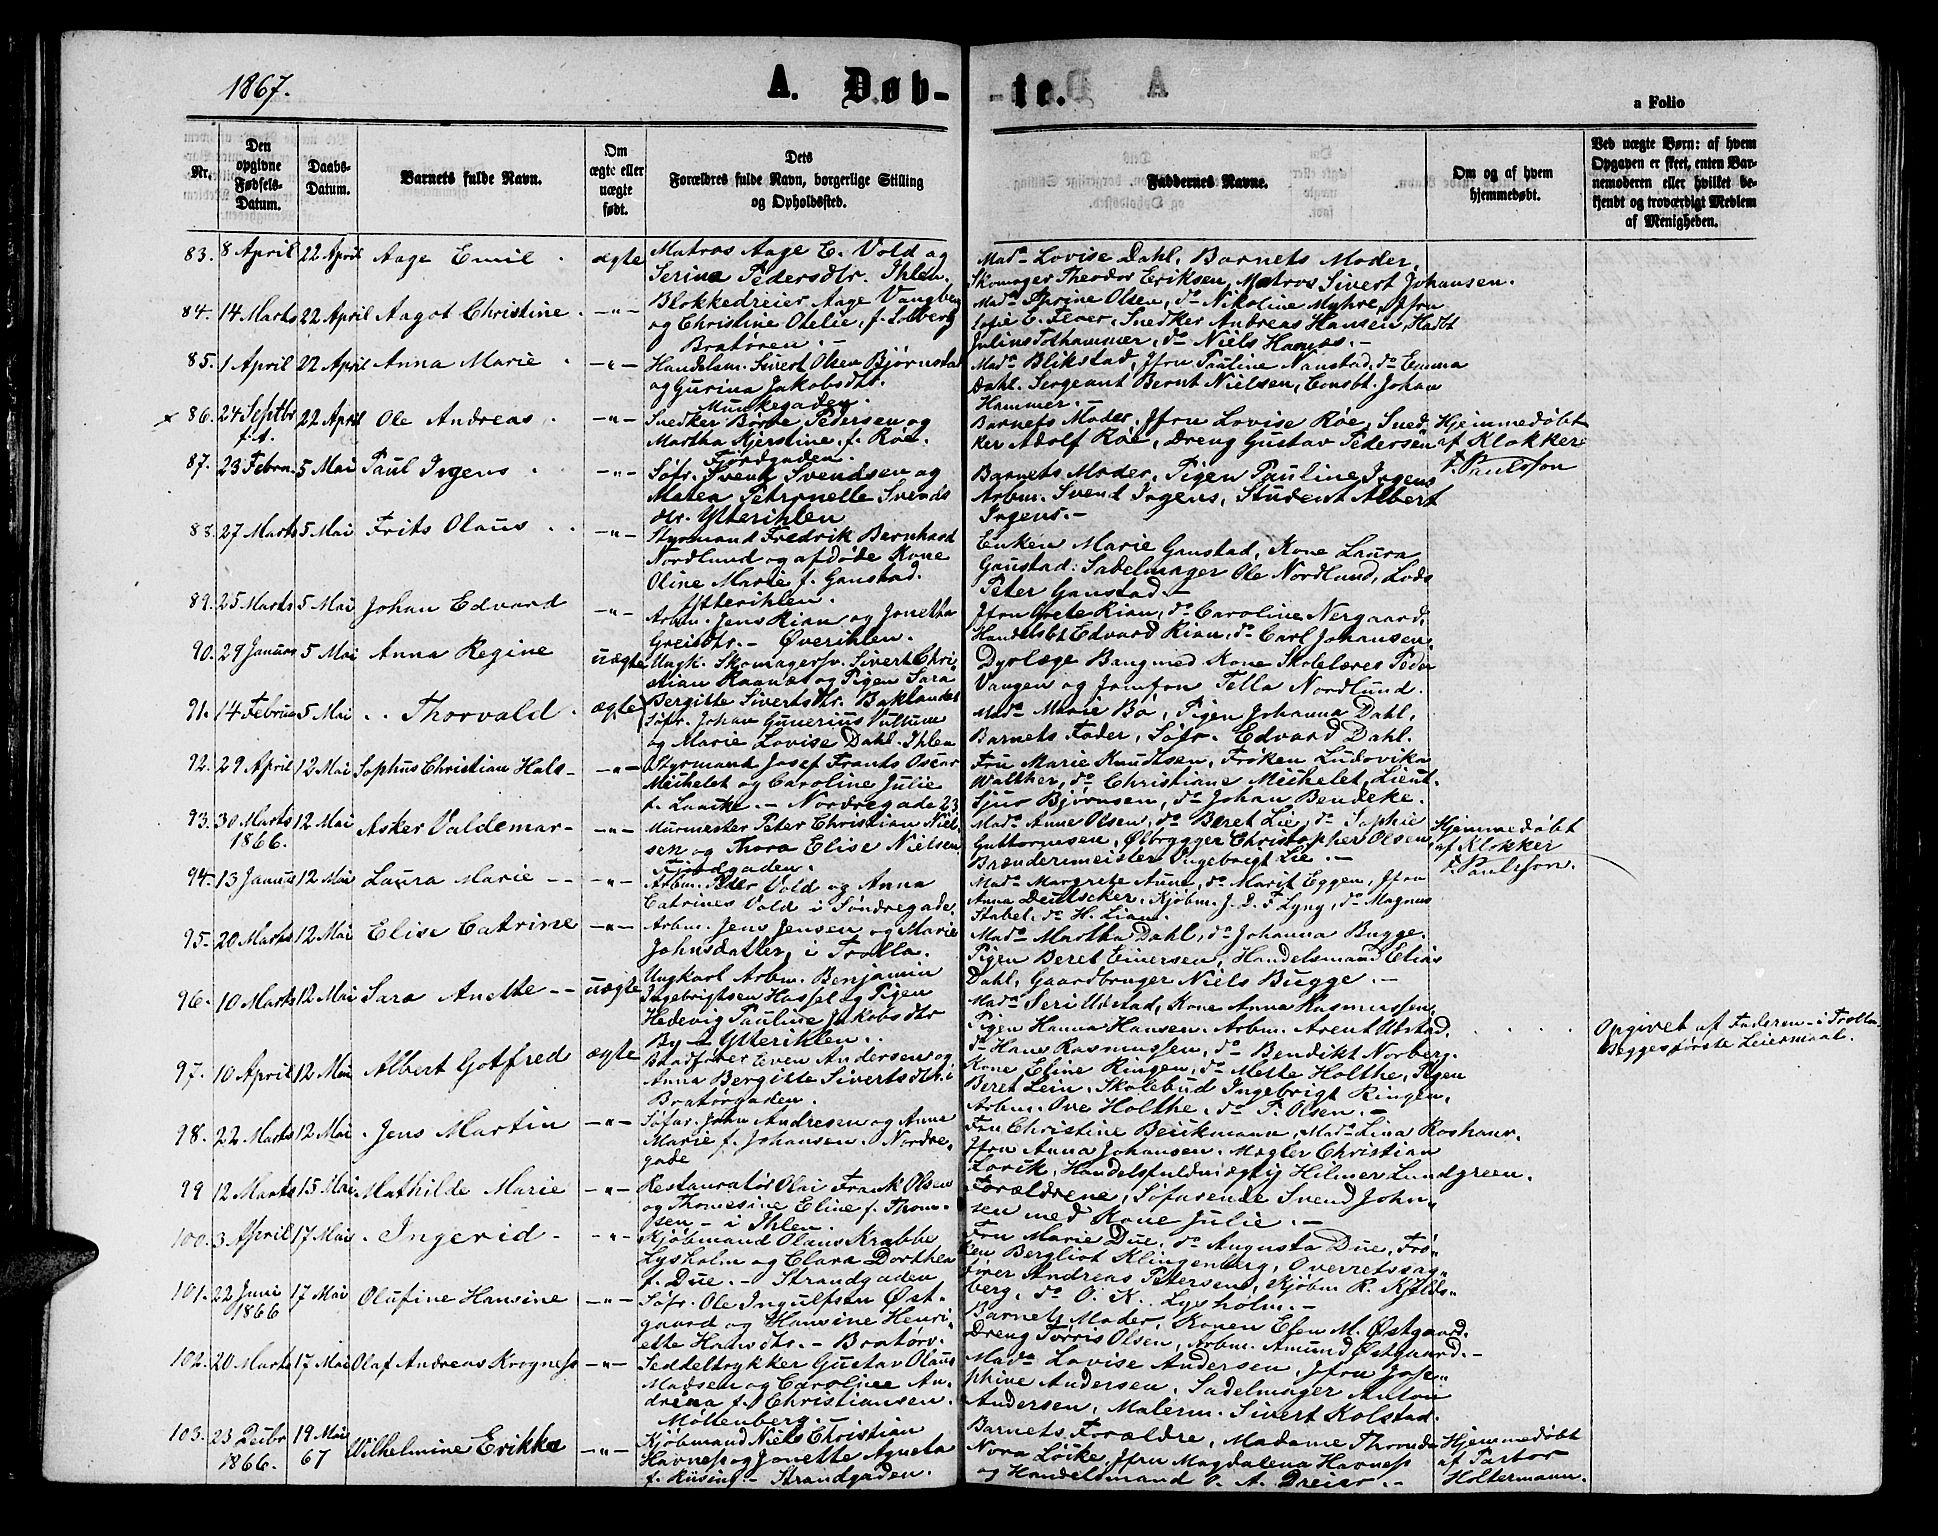 1867.
A. Døb-
te.
a Folio
Nr.
Den opgivne Fødsels-Datum.
Daabs-Datum.
Barnets fulde Navn.
Om ægte eller uægte født.
Dets Forældres fulde Navn, borgerlige Stilling og Opholdssted.
Faddernes Navne.
Om og af hvem hjemmedøbt.
Ved uægte Børn: af hvem Opgaven er skeet, enten Barnemoderen eller hvilket bekjendt og troværdigt Medlem af Menigheden.
83. 8 April 22 April Aage Emil ægte
Matros Aage E. Vold og
Serina Pedersdtr. Ihlen.
Mad. Lovise Dahl, Barnets Moder,
Skomager Theodor Eriksen, Matros Sivert Johansen.
84. 14 Marts 22 April Aagot Christine -"-
Blokkedreier Aage Vangberg
og Christine Otelie, f. Solberg
Bratøren.-
Olsen, do Nikoline Myhre, Jfru
Sofie E. Feier, Snedker Andreas Hansen, Hadbt
Julius Tothammer, do Niels Hanæs.-
85. 1 April 22 April Anna Marie -"-
Handelsm. Sivert Olsen Bjørnstad
og Gurina Jakobsdtr.
Munkegaden.
Mad. Blikstad, Jfru Pauline Nanstad, do Emma
Dahl. Sergeant Bernt Nielsen, Johan
Hammer.-
86. 24 Septbr f.A. 22 April Ole Andreas -"-
Snedker Børre Pedersen og
Martha Kjerstine, f. Roe.
Fjordgaden.
Barnets Moder, Jfru Lovise Røe, Sned
ker Adolf Røe, Dreng Gustav Pedersen
Hjemmedøbt
af Klokker
F. Paulsson
87. 23 Febru. 5 Mai Paul Ingens -"-
Søfr. Svend Svendsen og
Maren Petronelle Svends
dtr. Ytterihlen
Barnets Moder, Pigen Pauline Ingens
Arbm. Svend Ingens, Student Albert
Ingens.-
88. 27 Marts 5 Mai Frits Olaus -"-
Styrmand Fredrik Bernhard
Nordlund og afdøde Kone
Oline Marie f. Ganstad.
Ytterihlen.
Enken Marie Ganstad, Kone Laura
Ganstad. Sadelmager Ole Nordlund, Lods
Peter Ganstad.-
89. 25 Marts 5 Mai Johan Edvard -"-
Arbm. Jens Rian og Jonetha
Greisdtr.- Øverihlen.
Jfru Grete Rian, do Caroline Nergaard,
Handelsbt Edvard Rian, do Carl Johansen.
90. 29 Januar 5 Mai Anna Regine uægte
Ungk. Skomagersv. Sivert Chri-
stian Raanæs og Pigen Sara
Bergitte Sivertsdtr. Baklandet
Dyrlæge Bang med Kone Skolelærer Peder
Vangen og Jomfru Tella Nordlund.
91. 14 Februar 5 Mai Thorvald ægte
Søfr. Johan Gunerius Vullum
og Marie Lovise Dahl. Ihlen
Mad. Marie Bø, Pigen Johanna Dahl,
Barnets Fader, Søfr. Edvard Dahl.
92. 29 April 12 Mai Sophus Christian Hals- -"-
Styrmand Josef Frants Oscar
Michelet og Caroline Julie
f. Laache.- Nordregade 23
Fru Marie Knudtsen, Frøken Ludovika
Walther, do Christiane Michelet, Lieut
Sjur Bjørnsen, do Johan Bendeke.
93. 30 Marts 1866. 12 Mai Asker Valdemar- -"-
Murmester Peter Christian Niel-
sen og Thora Elise Nielsen
Fjordgaden.
Mad. Anne Olsen, do Beret Lie, do Sophie
Guttormsen, Ølbrygger Christopher Olsen,
Brænderimeister Ingebrigt Lie.-
Hjemmedøbt
af Klokker
F. Paulsson.
94. 13 Januar 12 Mai Laura Marie -- -"-
Arbm. Peter Vold og Anna
Catrines Vold i Søndregade.
Mad. Margrete Aune, do Marit Eggen, Jfru
Anna Deutscker, Kjøbm. J. D. F. Lyng, do Magnus
Stabel, do H. Lian.
95.- 20 Marts 12 Mai Elise Catrine -"-
Arbm. Jens Jensen og Marie
Johnsdatter i Trolla.
Mad. Martha Dahl, do Johanna Bugge.
Pigen Beret Einersen, Handelsmand Elias
Dahl, Gaardbruger Niels Bugge.-
96. 10 Marts 12 Mai Sara Anette -- uægte
Ungkarl Arbm. Benjamin
Ingebrigtsen Hassel og Pigen
Hedevig Pauline Jakobsdtr
By - Ytterihlen.
Mad. Seri Utstad, Kone Anna Rasmussen,
Pigen Hanna Hansen. Arbm. Arent Utstad.
do Hans Rasmussen, do Bendikt Norberg.
Opgivet af Faderen- i Trolla.
Begges første Leiermaal.
97. 10 April 12 Mai Albert Gotfred ægte
Baadfører Even Andersen og
Anna Bergitte Sivertsdtr. i
Bratørgaden.
Kone Eline Ringen, do Mette Holthe, Pigen
Beret Lein, Skolebud Ingebrigt Ringen,
Arbm. Ove Holthe, do P. Olsen.-
98. 22 Marts 12 Mai Jens Martin -"-
Søfar. John Andresen og Anne
Marie f. Johansen. Nordre-
gade
Fru Christine Beickmann, Mad. Lina Roshauw.
Jfru Anna Johansen. Mægler Christian
Lorck, Handelsfuldmægtig Hilmer Lundgreen.
99 12 Marts 15 Mai Mathilde Marie -"-
Restauratør Olai Frank Olsen
og Thomesine Eline f. Thom-
sen - i Ihlen.
Forældrene, Søfarende Svend John-
sen med Kone Julie.-
100. 3 April 17 Mai Ingerid- -"-
Kjøbmand Olaus Krabbe
Lysholm og Clara Dorthea
f. Due.- Strandgaden
Fru Marie Due, do Augusta Due, Frø-
ken Bergliot Klingenberg, Overretssag-
fører Andreas Petersen, Kjøbm R. Kjelds-
berg, do O. K. Lysholm.-
101. 22 Juni 1866 17 Mai Olufine Hansine -"-
Søfr. Ole Ingulfsen Øst-
gaard og Hansine Henri-
ette Hansdtr.- Bratørv.
Barnets Moder, Konen Efen M. Østgaard.
Dreng Tørris Olsen, Arbm. Amund Østgaard.-
102. 20 Marts 17 Mai Olaf Andreas Krogness -"-
Seddeltrykker Gustav Olaus
Madsen og Caroline An-
drina f. Christiansen.
Møllenberg.-
Mad. Lovise Andersen, Jfru Jose-
phine Andersen. Sadelmager Anton
Andersen, Malerm. Sivert Kolstad.
103. 23 Decbr 1866. 19 Mai 67 Wilhelmine Erikka -"-
Kjøbmand Niels Christian
Havness og Jonette Agneta
f. Riising- Strandgaden.
Barnets Forældre, Madame Thomda
Nora Løcke, Jfru Magdalena Havness
og Handelsmand O. A. Dreier.-
Hjemmedøbt
af Pastor
Holtermann.